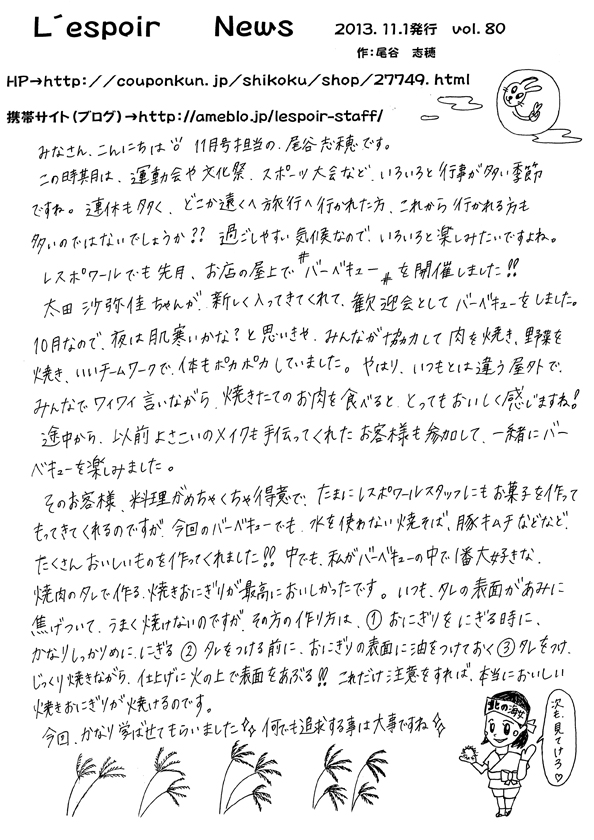 L´espoir News 2013.11.1発行 vol.80
作:尾谷 志穂
HP→http://couponkun.jp/shikoku/shop/27749.html
携帯サイト(ブログ)→http://ameblo.jp/lespoir-staff/
みなさん、こんにちは 11月号担当の、尾谷志穂です。
この時期は、運動会や文化祭、スポーツ大会など、いろいろと行事が多い季節
ですね。連休も多く、どこか遠くへ旅行へ行かれた方、これから行かれる方も
多いのではないでしょうか?? 過ごしやすい気候なので、いろいろと楽しみたいですよね。
レスポワールでも先月、お店の屋上で〃バーベキュー〃を開催しました!!
太田 沙弥佳ちゃんが、新しく入ってきてくれて、歓迎会としてバーベキューをしました。
10月なので、夜は肌寒いかな?と思いきや、みんなが協力して肉を焼き、野菜を
焼き、いいチームワークで、体もポカポカしていました。やはり、いつもとは違う屋外で、
みんなでワイワイ言いながら、焼きたてのお肉を食べると、とってもおいしく感じますね!
途中から、以前よさこいのメイクも手伝ってくれたお客様も参加して、一緒にバー
ベキューを楽しみました。
そのお客様、料理がめちゃくちゃ得意で、たまにレスポワールスタッフにもお菓子を作って
もってきてくれるのですが、今回のバーベキューでも、水を使わない焼そば、豚キムチなどなど、
たくさんおいしいものを作ってくれました!! 中でも、私がバーベキューの中で1番大好きな、
焼肉のタレで作る、焼きおにぎりが最高においしかったです。いつも、タレの表面があみに
焦げついて、うまく焼けないのですが、その方の作り方は、①おにぎりをにぎる時に、
かなりしっかりめに、にぎる ②タレをつける前に、おにぎりの表面に油をつけておく ③タレをつけ、
じっくり焼きながら、仕上げに火の上で表面をあぶる!! これだけ注意をすれば、本当においしい
焼きおにぎりが焼けるのです。
今回、かなり学ばせてもらいました 何でも追求する事は大事ですね
北の海
次も、見てけろ♡